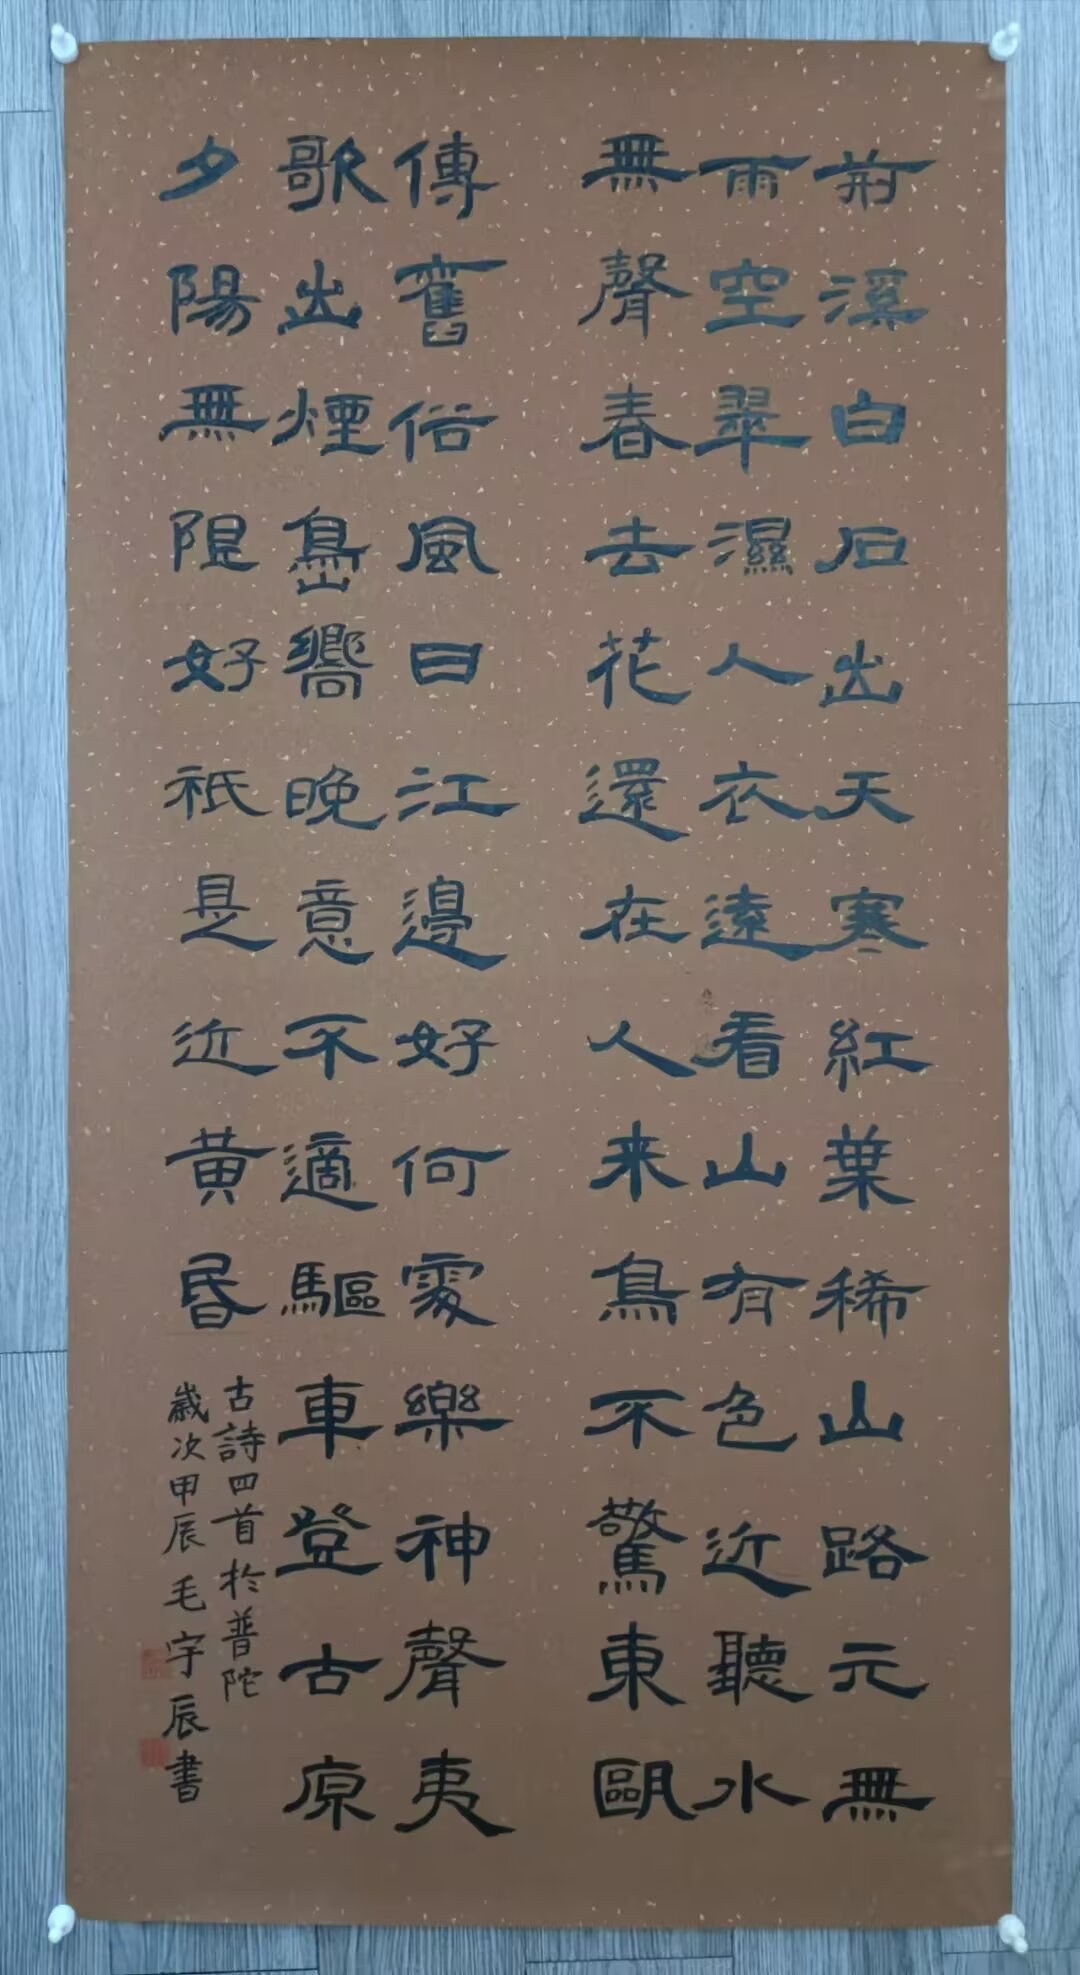 荊溪白石出天寒紅葉稀山路元無
雨空翠濕人衣遠看山有色近聽水
無聲春去花還在人来鳥不驚東甌
傳舊俗風日江邊好何處樂神聲夷
歌出煙島嚮晚意不適驅車登古原
夕陽無限好祇是近黄昏
古詩四首於普陀
歲次甲辰毛宇辰書